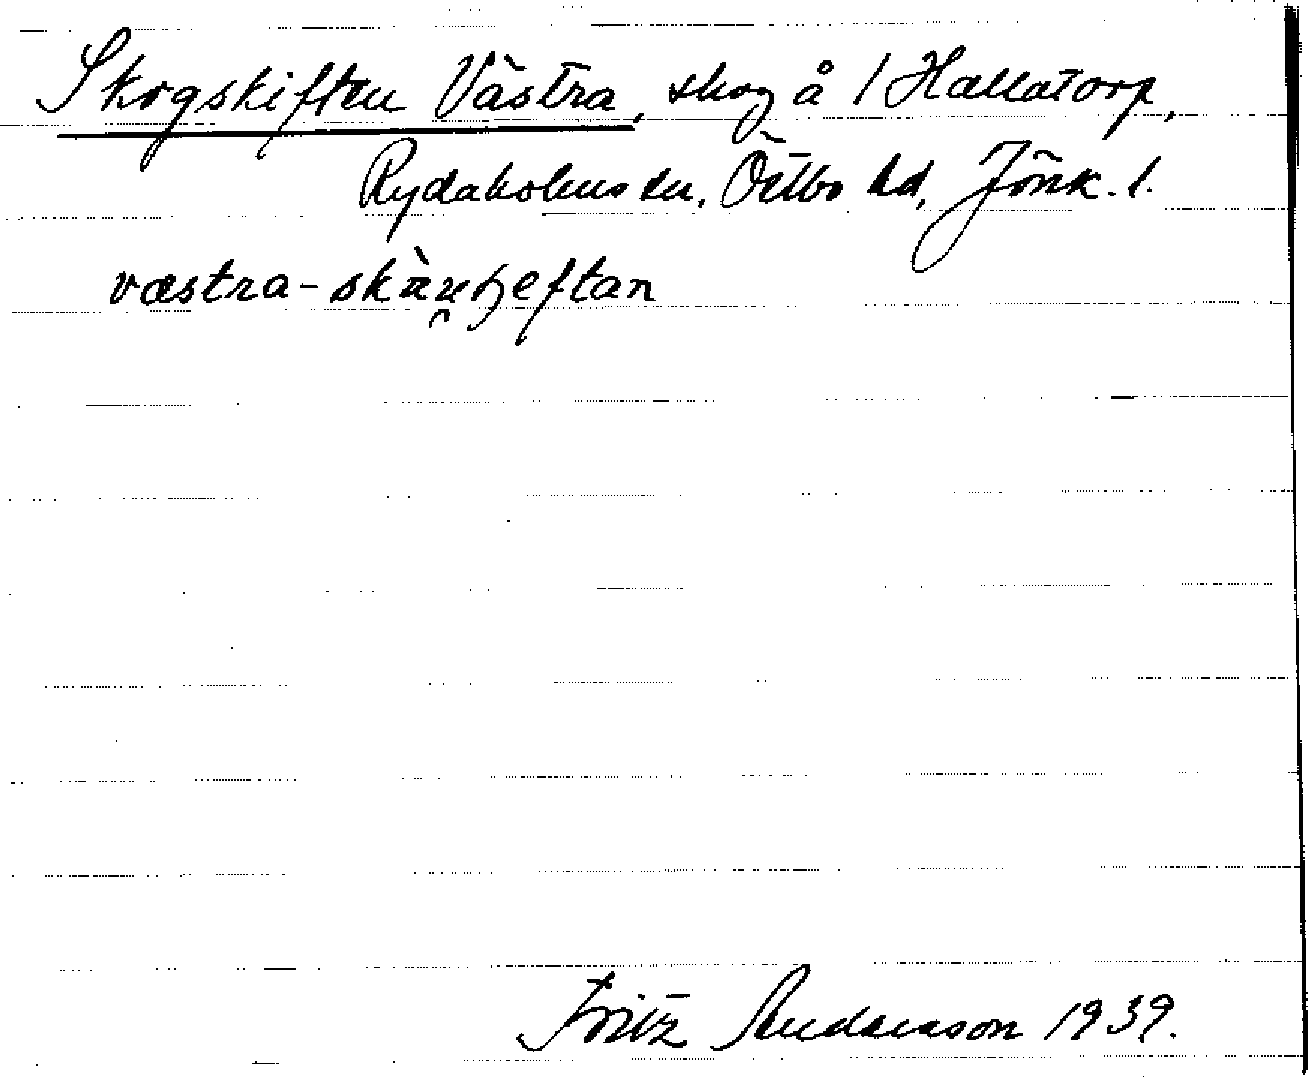 Skogskiften Västra, skog å 1 Hallatorp,
Rydaholms sn, Östbo hd, Jönk. l.
væstra-skäu̯ʃeftan
Fritz Andersson 1939.